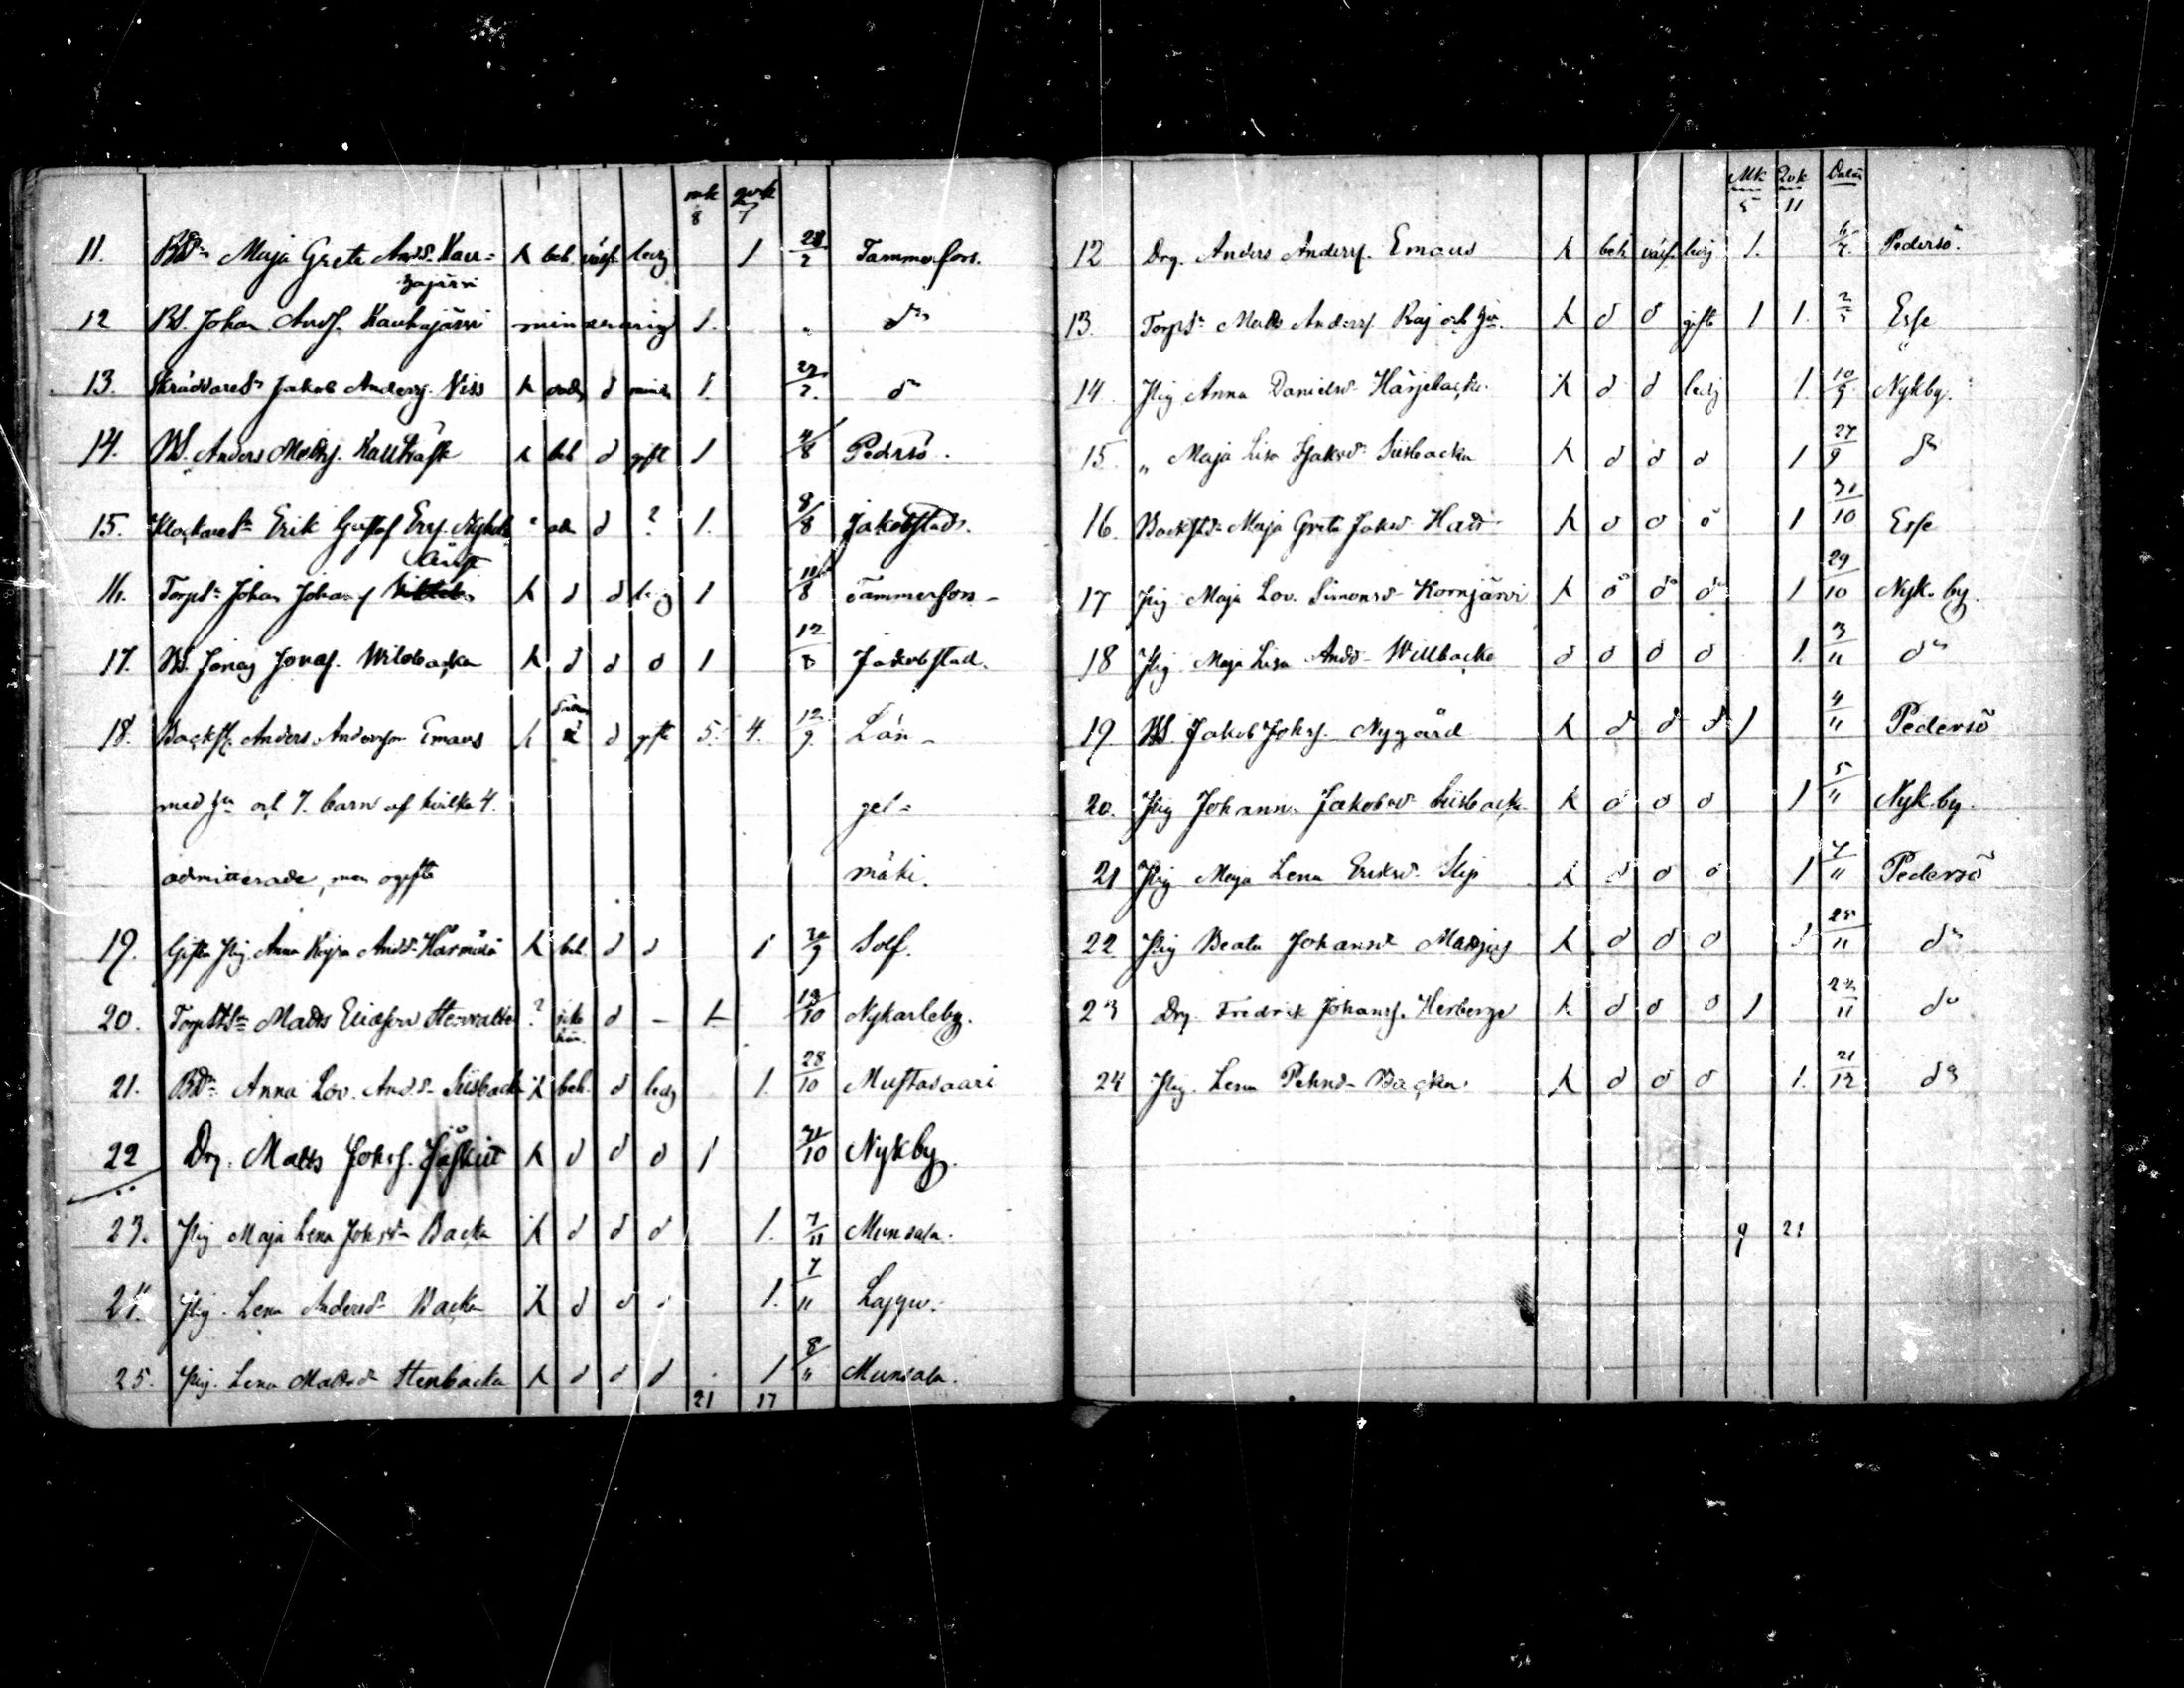 mk qvk
8 7
11. Bds Maja Greta Andd. Kau= h beh. väsf. ledig 1 28/7 Tammerfors.
hajärvi
12 Bd. Johan Andf. Kauhajärvi minderårig 1. do
13. Skräddares Jakob Andersf. Niss h d 1. 27/7. do
14. Bd. Anders Mattsf. h beh d gift 1 4/8 Pedersö.
15. Klockares Erik Gustaf Erf. ? d ? 1. 8/8 Jakobstad.
16. Torps Johan Johansf h d d ledig 1 11/8 Tammerfors
17. Bd. Jonas Jonasf. Wilobacka h d d d 1 12/8 Jakobstad.
18. Backst. Anders Andersson Emaus h d gift 5. 4. 12/9. Lån-
med hu och 7. barn af hvilka 4. gel=
admitterade, men ogifta mäki.
19. Gifta Pig. Anna Kajsa Andd. h beh. d d 1 Solf.
20. Torps Matts Eliasson ? icke d – 1 /10 Nykarleby.
21. Bd Anna Lov. Andd. Siisbacka h beh. d ledig 1. 28/10 Mustasaari
22 Drg. Matts Johsf. h d d d 1 31/10 Nykby.
23. Pig Maja Lena Johsd. Backa h d d d 1. 7/11 Munsala.
24. Pig. Lena Andersd. Backa h d d d 1. 7/11 Lappo.
25. Pig. Lena Mattsd. Stenbacka h d d d 1 8/11 Munsala.
21 17
Mk Qvk Datum
5 11
12 Drg. Anders Andersf. Emaus h beh väsf. ledig 1. Pedersö.
13. Torps Matts Andersf. Raj och hu. h d d gift 1 1. Esse
14. Pig Anna Danielsd. Härjebacka. h d d ledig 1. 10/9 Nykby.
15. „ Maja Lisa Jakosd. Siisbacka h d d d 1 27/9 do
16. Backstd. Maja Greta Jakosd. h d d d 1 31/10 Esse
17 Pig Maja Lov. Simonsd. Kornjärvi h d d d 1 29/10 Nyk.by.
18 Pig Maja Lisa Andd. Willbacka d d d d 1. 3/11 do
19. Bd. Jakob Johsf. Nygård h d d d 1 4/11 Pedersö
20. Pig Johanna Jakobsd. Siisbacka h d d d 1 5/11 Nyk.by.
21 Pig Maja Lena Eriksd. Slip h d d d 1 7/11 Pedersö
22 Pig Beata Johansd. h d d d 1. 25/11 do
23 Drg. Fredrik Johansf. Herberge h d d d 1 /11 do
24 Pig. Lena Backa. h d d d 1. 21/12 do
9 21